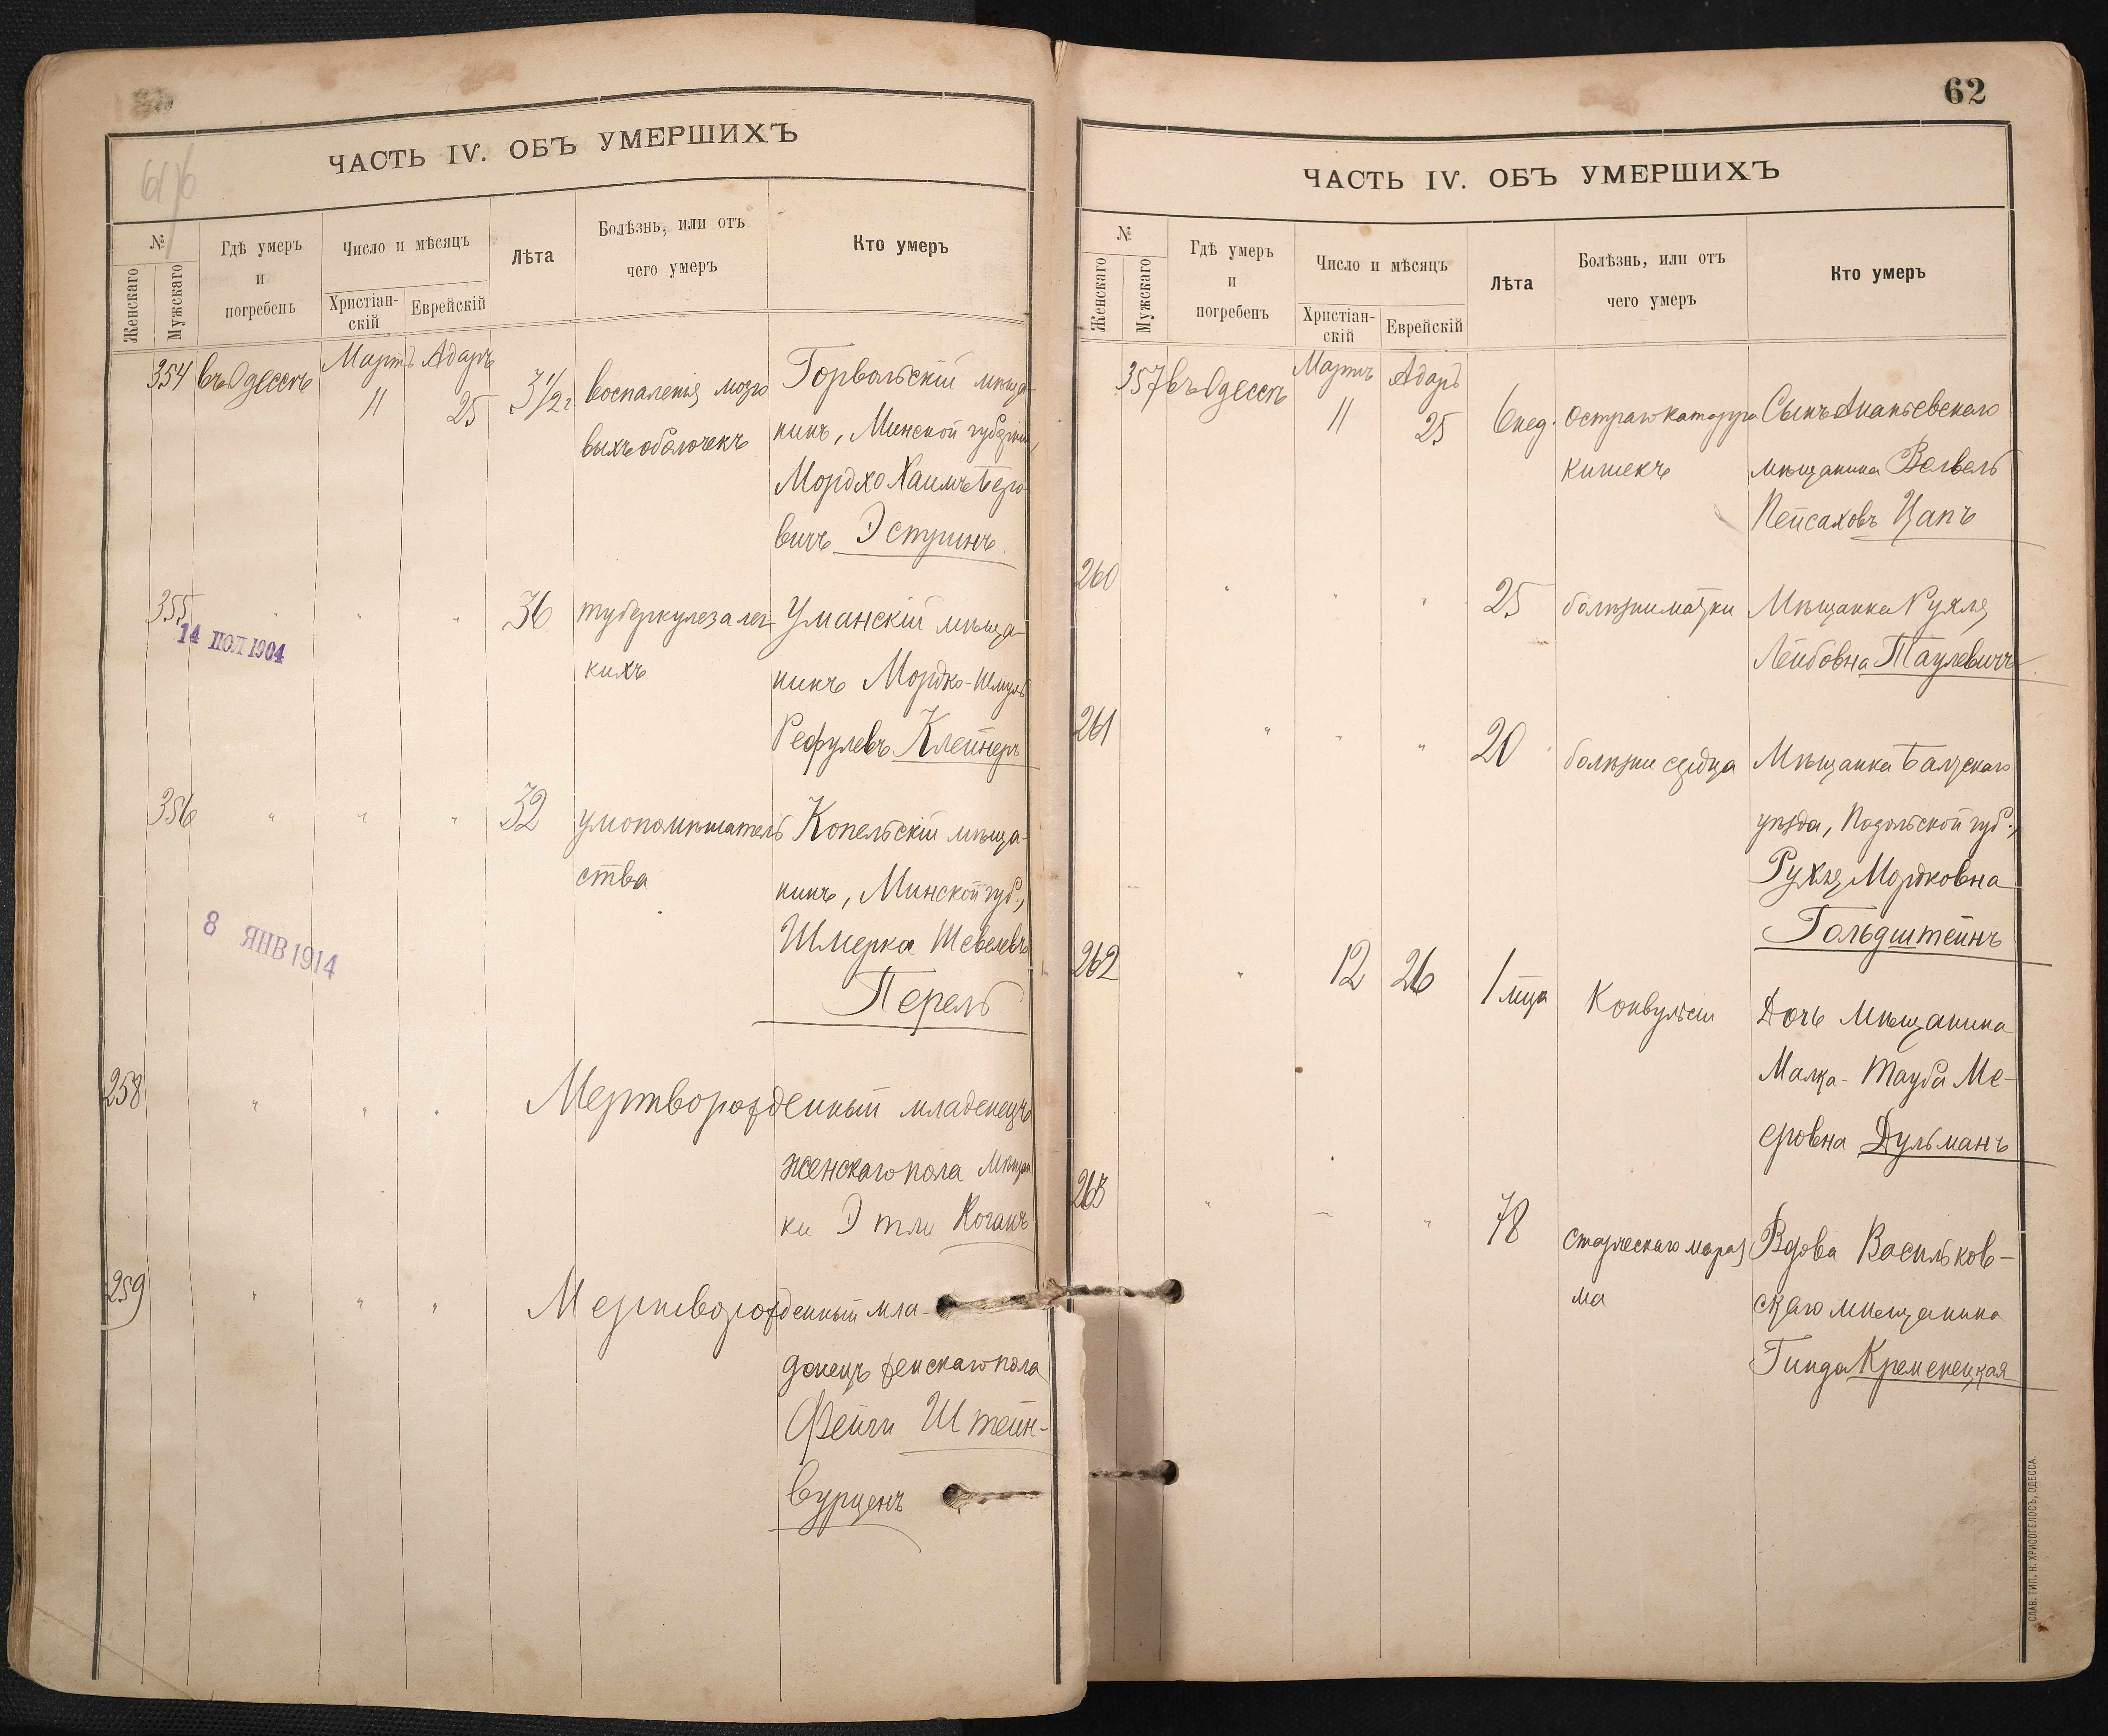 ЧАСТЬ IV. ОБЪ УМЕРШИХЪ
№
Женскаго
Мужскаго
Гдѣ умеръ
и
погребенъ
Число и мѣсяцъ
Христіан-
скій
Еврейскій
Лѣта
Болѣзнь, или отъ
чего умеръ
Кто умеръ
354 въ Одессѣ Мартъ Адаръ
11 25 3 1/2 г воспаленія мозго
выхъ оболочекъ
Горвольскій мѣща-
нинъ, Минской губерніи,
Мордхо Хаимъ Берко-
вичъ Эструинъ
355 " " " 36 туберкулеза лег-
кихъ
14 ІЮЛ 1904
Уманскій мѣща-
нинъ Мордко-Шмуль
Рефулевъ Клейнеръ
356 " " " 32 умопомѣшатель
ства
Копельскій мѣща-
нинъ, Минской губ.,
Шмерка Шевелевъ
Перель
8 ЯНВ 1914
258 " " " Мертворожденный младенецъ
женскаго пола Мѣщан
ки Этли Коганъ
259 " " " Мертворожденный мла-
денецъ женскаго пола
Фейги Штейн-
вурценъ
62
ЧАСТЬ IV. ОБЪ УМЕРШИХЪ
№
Женскаго
Мужскаго
Гдѣ умеръ
и
погребенъ
Число и мѣсяцъ
Христіан-
скій
Еврейскій
Лѣта
Болѣзнь, или отъ
чего умеръ
Кто умеръ
357 въ Одессѣ Мартъ Адаръ
11 25 6 нед. Остраго катарра
кишекъ
Сынъ Ананьевскаго
мѣщанина Вольвель
Пейсаховъ Цапъ
260 " " " 25 болѣзни матки
Мѣщанка Рухля
Лейбовна Таулевичъ
261 " " " 20 болѣзни сердца
Мѣщанка Балтскаго
уѣзда, Подольской губ.,
Рухля Мордковна
Гольдштейнъ
262 " 12 26 1 мца Конвульсіи
Дочь мѣщанина
Малка-Тауба Ме-
еровна Дульманъ
263 " " " 78 Старческаго мараз
ма
Вдова Васильков-
скаго мѣщанина
Гинда Кременецкая
СЛАВ. ТИП. Н. ХРИСОГЕЛОСЪ, ОДЕССА.